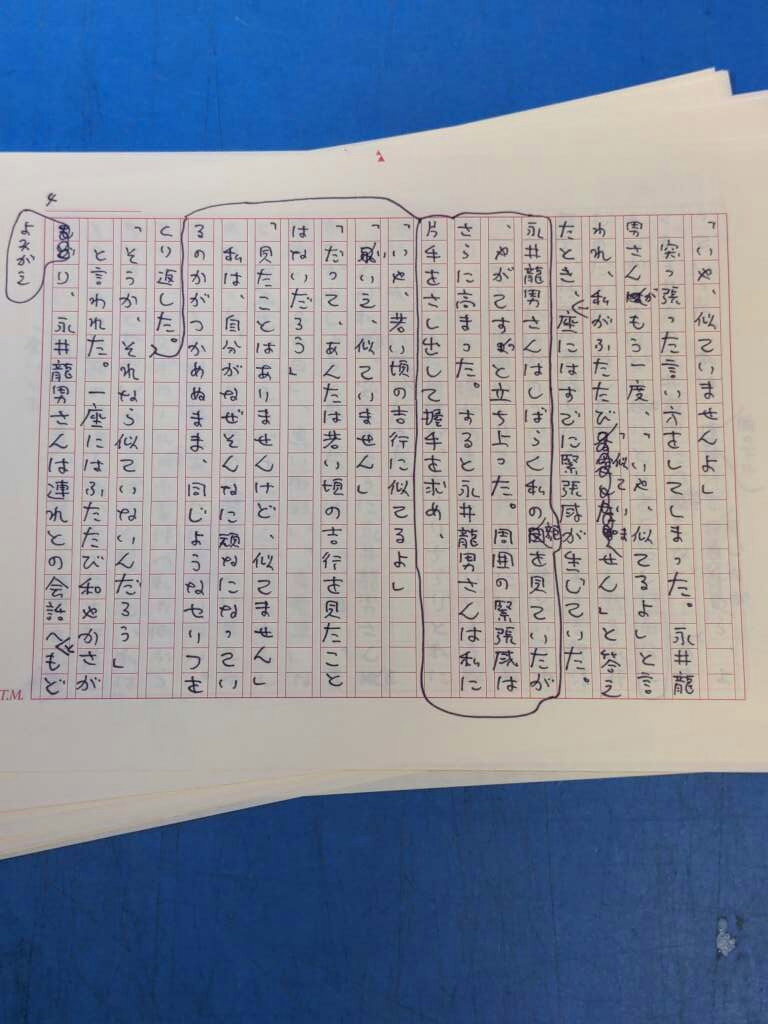 「いや、似ていませんよ」
突っ張った言い方をしてしまった。永井龍
男さんがもう一度、「いや、似てるよ」と言
われ、私がふたたび「似ていません」と答え
たとき、座にはすでに緊張感が生じていた。
永井龍男さんはしばらく私の顔を見ていたが
、やがてすっと立ち上った。周囲の緊張感は
さらに高まった。すると永井龍男さんは私に
片手をさし出して握手を求め、
「いや、若い頃の吉行に似てるよ」
「いえ、似ていません」
「だって、あんたは若い頃の吉行を見たこと
はないだろう」
「見たことはありませんけど、似てません」
私は、自分がなぜそんなに頑なになってい
るのかがつかめぬまま、同じようなセリフを
くり返した。
「そうか、それなら似ていないんだろう」
と言われた。一座にはふたたび和やかさが
よみがえり、永井龍男さんは連れとの会話へもど
4
T.M.